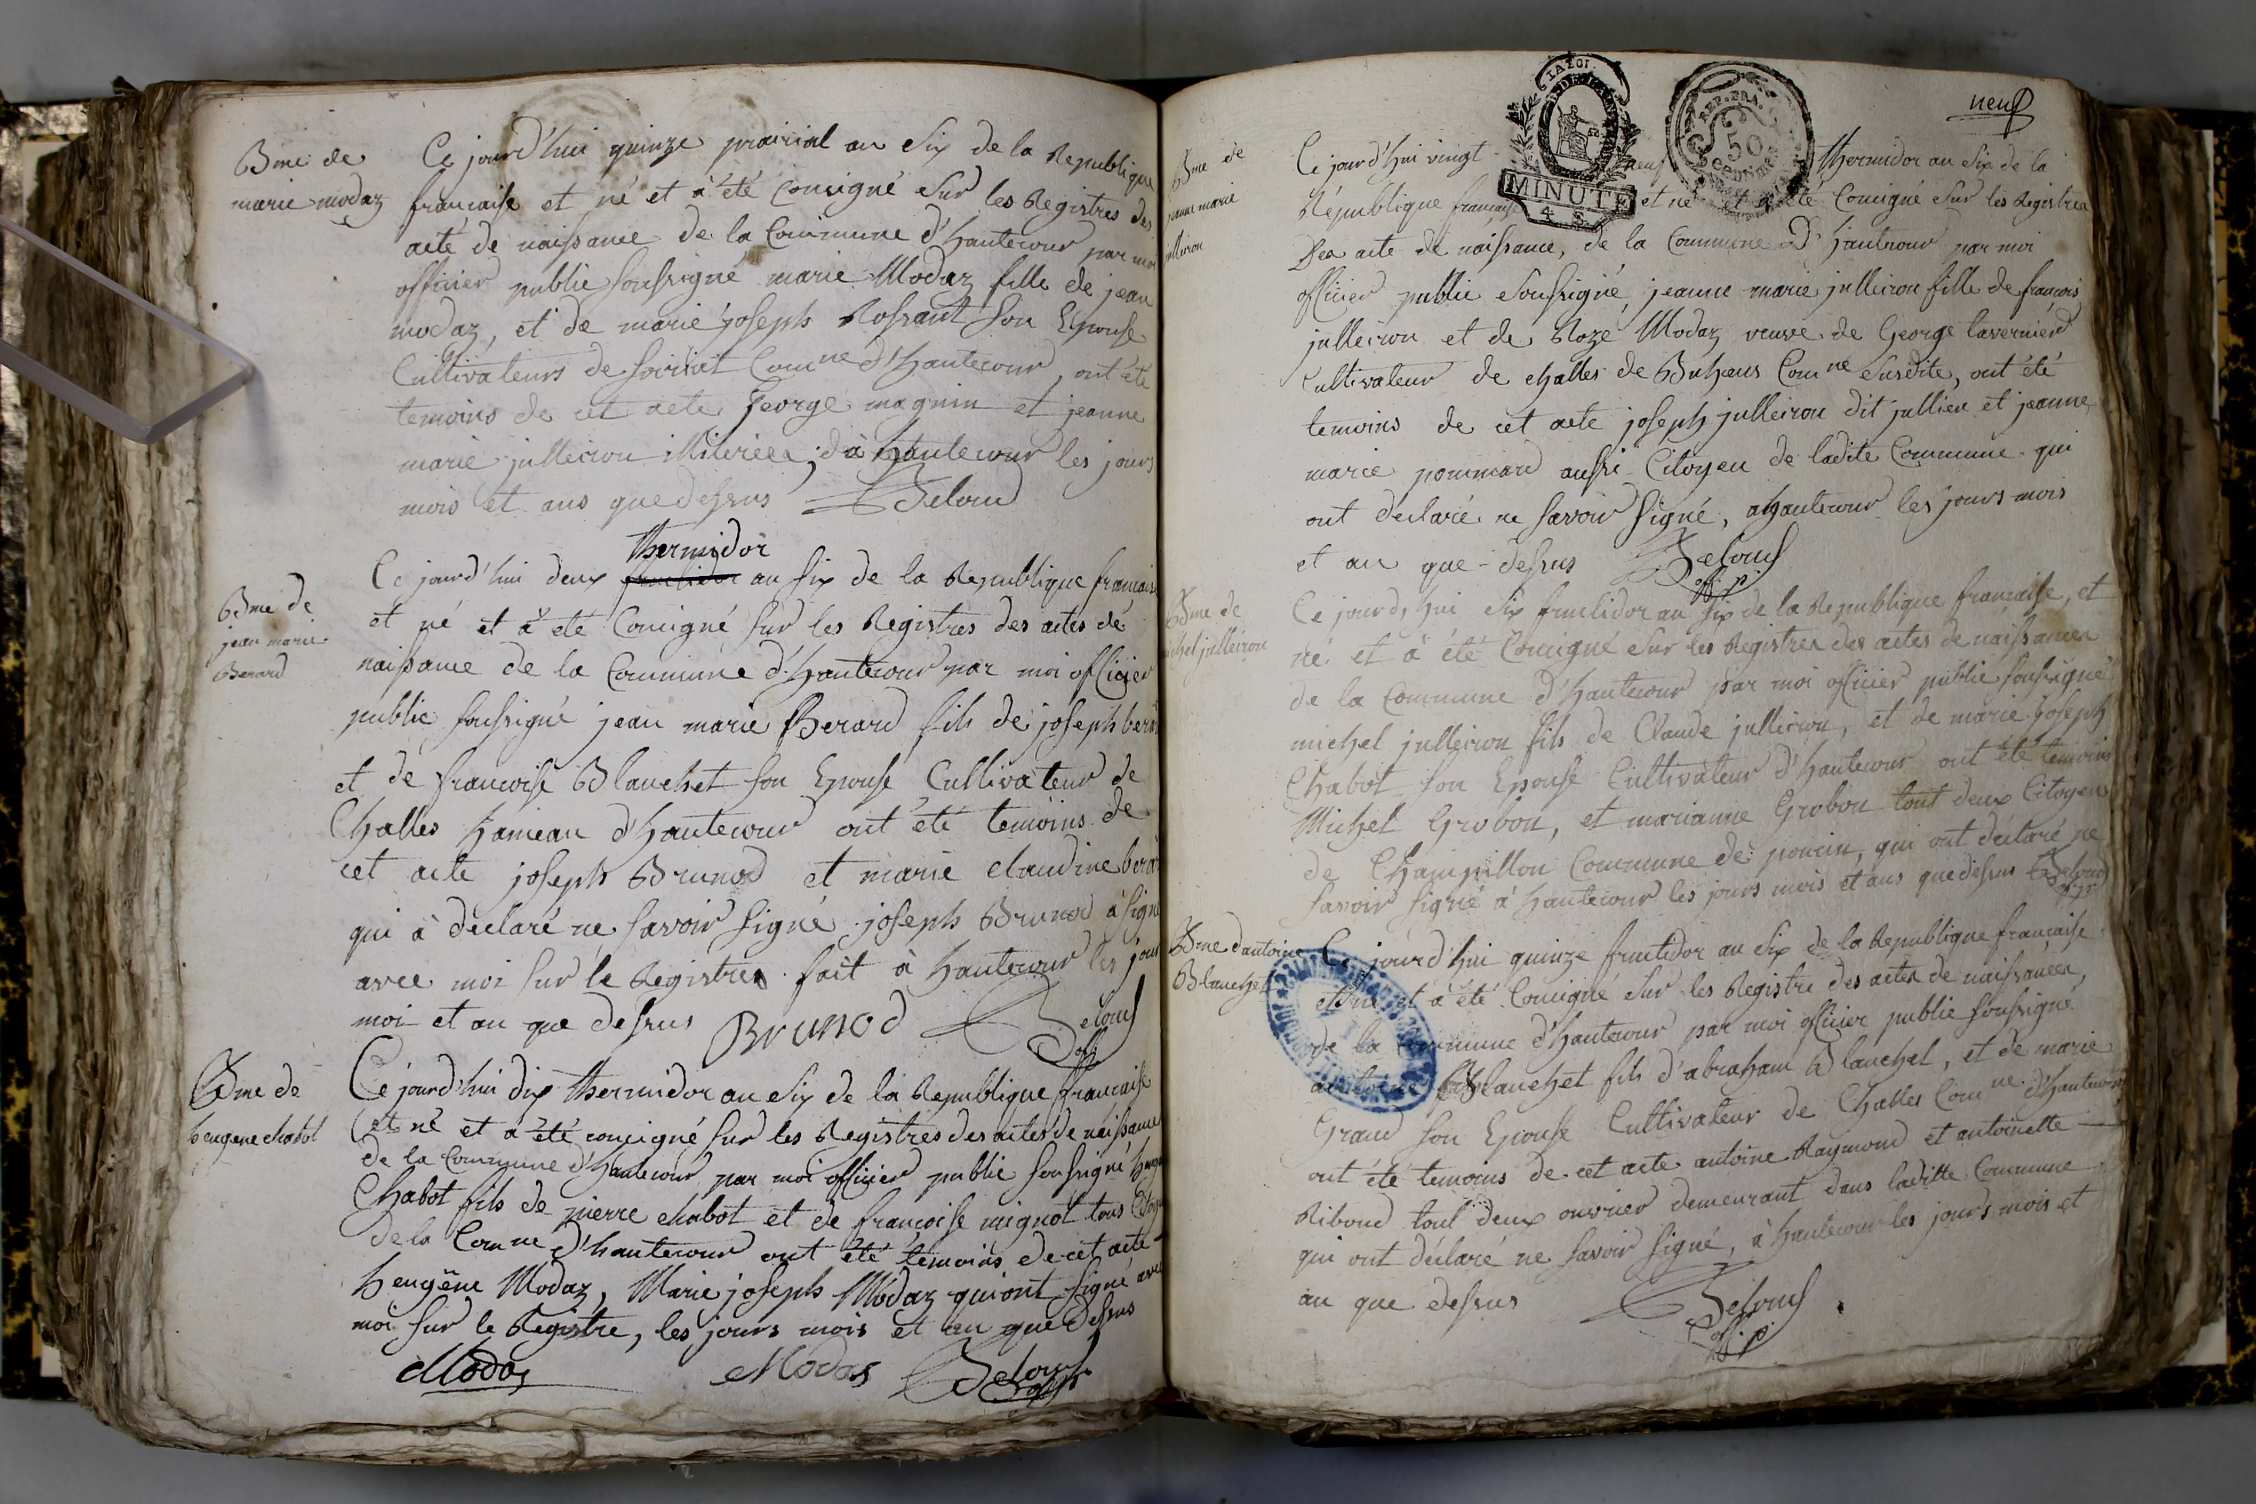 Bme de
marie modaz
Ce jourd'hui quinze prairial an Six de la Republique
francaise et né et à été Consigné Sur les Registres des
acte de naissance de la Commune d'hautecour par moi
officier public soussigné marie Modaz fille de jean
modaz, et de marie joseph Rossant son Epouse
Cultivateurs de Comne d'hautecour, ont été
temoins de cet acte George magnin et jeanne
marie julleiron illiterées, à hautecour les jours
mois et ans que dessus Beloud
Bme de
jean marie
Berard
thermidor
Ce jourd'hui deux fructidor an Six de la Republique francaise
et né et à été Consigné sur les Registres des actes de
naissance de la Commune d'hautecour par moi officier
public soussigné jean marie Berard fils de joseph
et de francoise Blanchet son Epouse Cultivateur de
Challes hameau d'hautecour ont été temoins de
cet acte joseph Brunod et marie claudine
qui à déclaré ne savoir signé joseph Brunod à signé
avec moi sur le Registres fait à hautecour les jour
moi et an que dessus Brunod Beloud
off
Bme de
heugene chabot
Ce jourd'hui dix thermidor an Six de la Republique francaise
et né et à été consigné sur les Registres des actes de naissance
de la Commune d'hautecour par moi officier public soussigné
Chabot fils de pierre chabot et de francoise mignot tous
de la Comne d'hautecour ont été temoins de cet acte
heugêne Modaz, Marie joseph Modaz qui ont signé avec
moi sur le Registre, les jours mois et an que dessus
Modas Modas Beloud
IAZOI
MINUTE
4 S.
REP. FRA.
50
neuf
Bme de
jeanne marie
julleiron
Ce jourd'hui vingt neuf thermidor an Six de la
République francaise et né et à été Consigné Sur les Registres
Des acte de naissance, de la Commune D'hautecour par moi
officier public Soussigné, jeanne marie julleiron fille de francois
julleiron et de Roze Modaz veuve de George tavernier
Cultivateur de challes de Bohas Comne Susdite, ont été
temoins de cet acte joseph julleiron dit jullien et jeanne
marie pommard aussi Citoyen de ladite Commune qui
ont declaré ne savoir signé, a hautecour les jours mois
et an que dessus Beloud
off. p.
Bme de
michel julleiron
Ce jourd,hui six fructidor an six de la Republique francaise, et
né et à été Consigné Sur les Registres des actes de naissances
de la Commune d'hautecour par moi officier public soussigné
michel julleiron fils de Claude julleiron, et de marie joseph
Chabot son Epouse Cultivateur d'hautecour ont été temoins
Michel Grobon, et marianne Grobon tout deux Citoyen
de Champillon Commune de poncin, qui ont déclaré ne
savoir signé à hautecour les jours mois et ans que dessus Beloud
Bme d'antoine
Blanchet
Ce jourd'hui quinze fructidor an Six de la Republique francaise
et né et à été Consigné Sur les Registre des actes de naissances,
de la Commune d'hautecour par moi officier public soussigné
antoine Blanchet fils d'abraham Blanchet, et de marie
Grand son Epouse Cultivateur de Challes Comne d'hautecour
ont été temoins de cet acte antoine Raymond et antoinette
Riboud tout deux ouvrier demeurant dans laditte Commune
qui ont déclaré ne savoir signé, à hautecour les jours mois et
an que dessus Beloud
off. p.